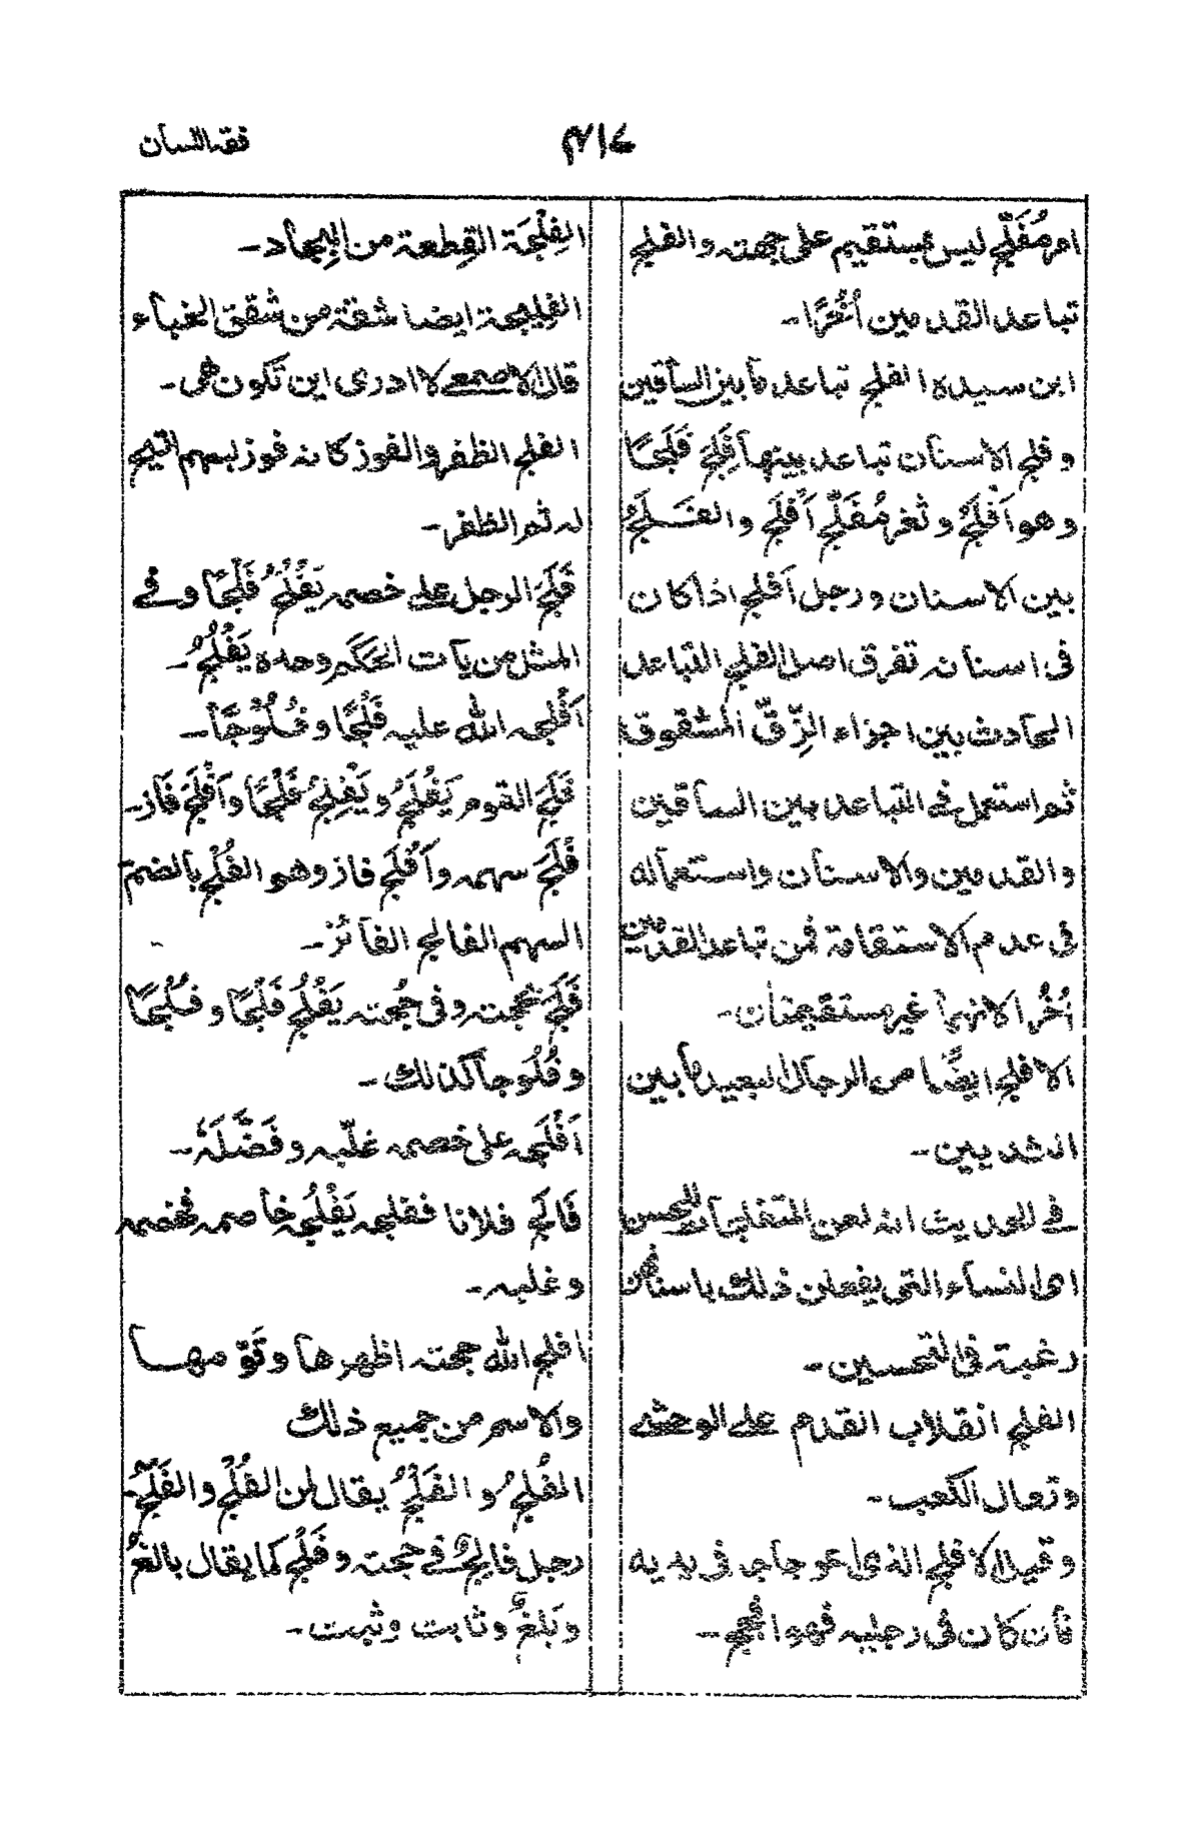 فقه اللسان
٤١٧
امر مُفَلَّج ليس بمستقيم على جهته والفلج
تباعد القدمين أُخُرًا۔
ابن سيده الفلج تباعد ما بين الساقين
وفلج الاسنان تباعد بينها فَلِجَ فَلَجًا
وهو اَفْلَجُ وثغر مُفَلَّج اَفْلَج والفَلَجُ
بين الاسنان ورجل اَفلج اذا كان
فى اسنانه تفرق اصل الفلج التباعد
الحادث بين اجزاء الزِّقّ المشقوق
ثم استعمل فى التباعد بين الساقين
والقدمين والاسنان واستعماله
فى عدم الاستقامة فمن تباعد القدمين
اُخُرا لانهما غير مستقيمتان۔
الافلج ايضًا من الرجال البعيد ما بين
الثديين۔
فى الحديث انه لعن المتفلجات للحسن
اى النساء التى يفعلن ذلك باسنانهن
رغبة فى التحسين۔
الفلج انقلاب القدم على الوحشى
وتعال الكعب۔
وقيل الافلج الذى اعوجاجه فى يديه
فان كان فى رجليه فهو افحج۔
الفِلْجَة القِطعة من البِجاد۔
الفليجة ايضا شقة من شقق الخباء
قال الاصمعى لا ادرى اين تكون هى۔
الفلج الظفر والفوز كانه فوز بسهم اتيح
له ثم الظفر۔
فَلَجَ الرجل على خصمه يَفْلُجُ فَلْجًا وفى
المثل من يأت الحَكَم وحده يَفْلُجُ۔
اَفْلجه الله عليه فَلْجًا وفُلُوْجًا۔
فَلَجَ القوم يَفْلُجُ ويَفْلِجُ فَلْجًا واَفْلَجَ فَاز۔
فَلَجَ سهمه واَفْلَج فاز وهو الفُلْج بالضم
السهم الفالج الفائز۔
فَلَجَ بحجته وفى حُجته يَفْلُجُ فَلْجًا وفُلْجًا
وفُلُوجا كذلك۔
اَفْلَجه على خصمه غلّبه وفَضَّلَهٗ۔
فَالَج فلانا ففلجه يَفْلُجُه خاصمه فخصمه
وغلبه۔
افلج الله حجته اظهرها وقَوّمها
والاسم من جميع ذلك
الفُلْجُ والفَلَجُ يقال لمن الفُلْجُ والفَلَجُ۔
رجل فالِجٌ فى حجته وفَلْجٌ كما يقال بالغٌ
وبَلغٌ وثابت وثبت۔